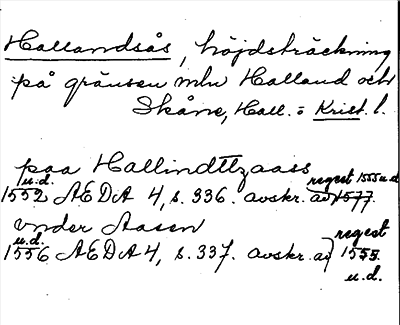 Hallandsås, höjdsträckning
på gränsen mln Halland och
Skåne, Hall. o Krist. l.
paa Hallindttzaass
u.d. regest 1555 u.d.
1552 AEDA 4, s. 336. avskr. av 1577.
vnder Aasen
u.d. regest
1556 AEDA 4, s. 337. avskr. av 1555.
u.d.